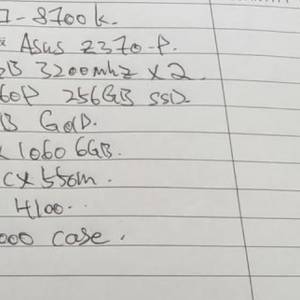 7-8700k.
Asus Z370-P.
GB 3200mhz x2.
60P 256GB SSD
B Gold.
x 1060 6GB.
CX 550m.
H100.
000 case.